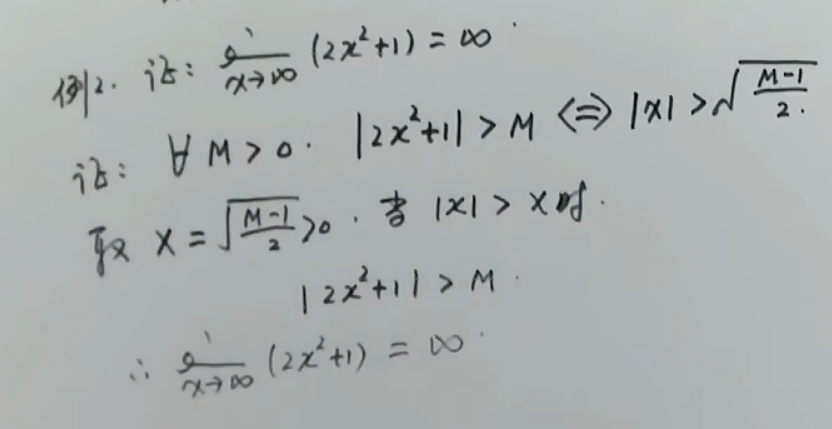 例2. 证: lim x→∞ (2x²+1) = ∞.
证: ∀ M > 0. |2x²+1| > M ⇔ |x| > √((M-1)/2).
取 X = √((M-1)/2) > 0. 当 |x| > X 时.
|2x²+1| > M.
∴ lim x→∞ (2x²+1) = ∞.